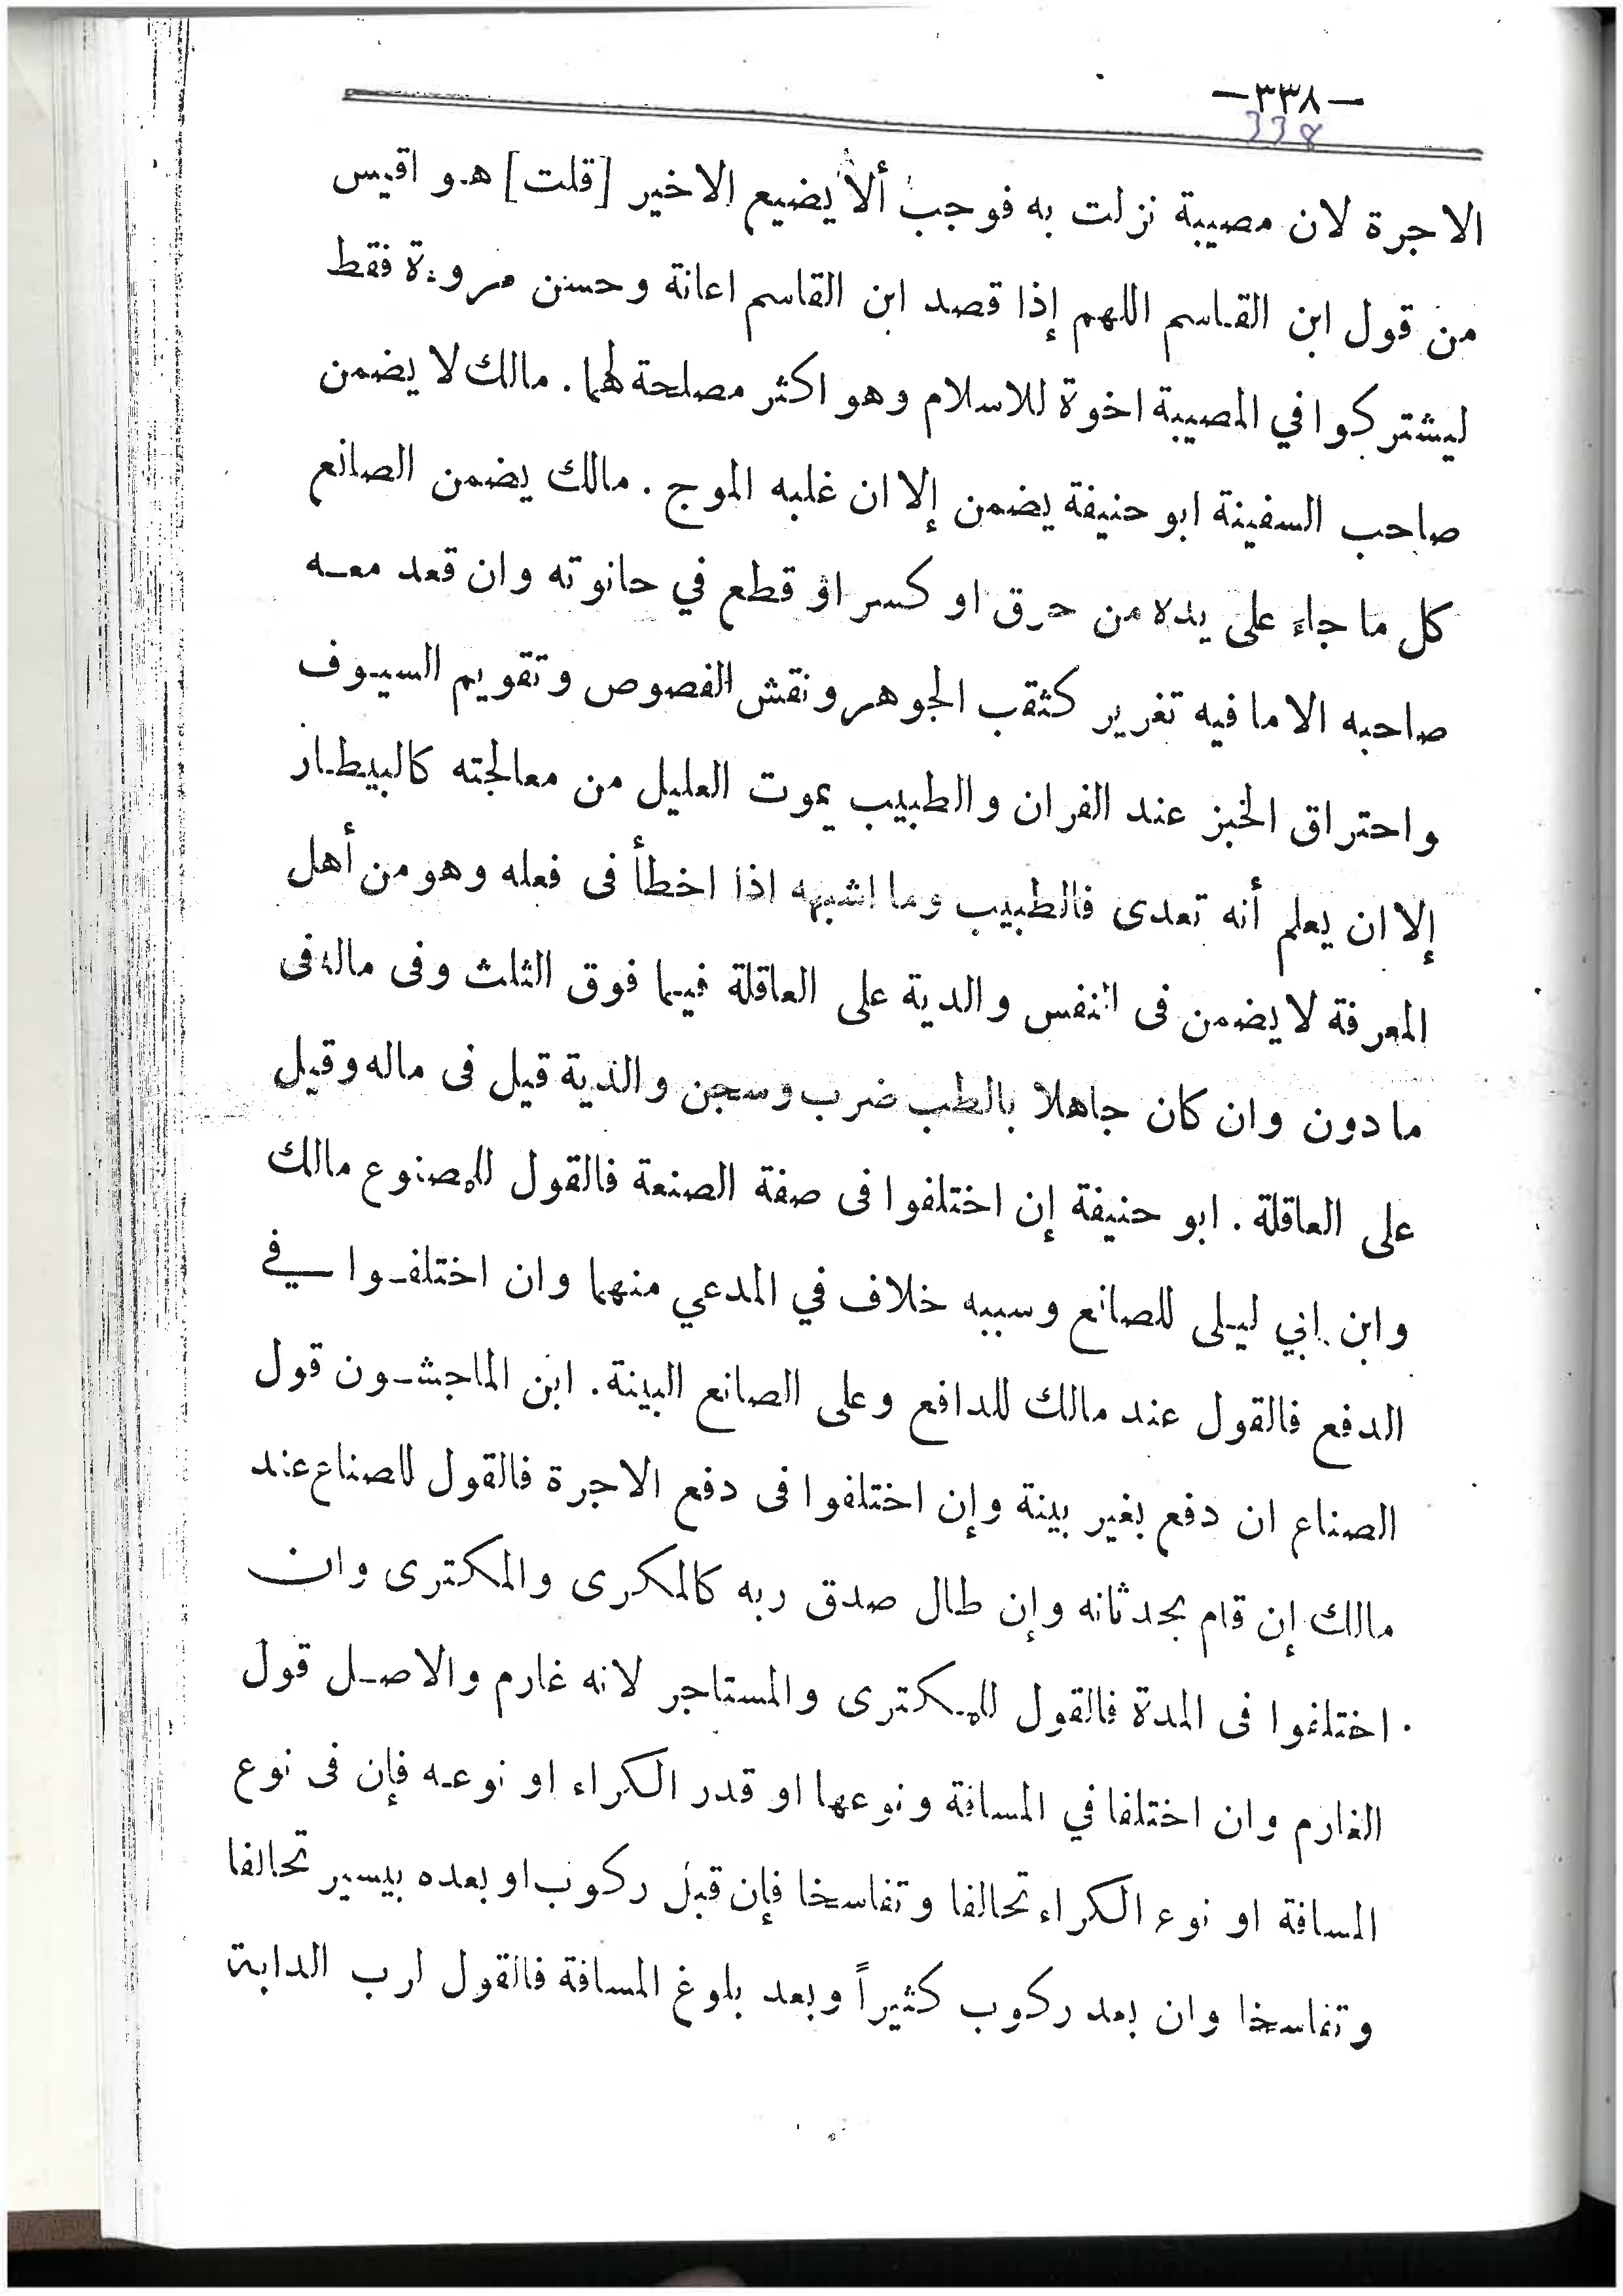 —٣٣٨—
338
الاجرة لان مصيبة نزلت به فوجب ألا يضيع الاخير [قلت] هو اقيس
من قول ابن القاسم اللهم إذا قصد ابن القاسم اعانة وحسن مروءة فقط
ليشتركوا في المصيبة اخوة للاسلام وهو اكثر مصلحة لهما. مالك لا يضمن
صاحب السفينة ابو حنيفة يضمن إلا ان غلبه الموج. مالك يضمن الصانع
كل ما جاء على يده من حرق او كسر او قطع في حانوته وان قعد معه
صاحبه الا ما فيه تغرير كثقب الجوهر ونقش الفصوص وتقويم السيوف
واحتراق الخبز عند الفران والطبيب يموت العليل من معالجته كالبيطار
إلا ان يعلم أنه تعدى فالطبيب وما اشبهه اذا اخطأ فى فعله وهو من أهل
المعرفة لا يضمن فى النفس والدية على العاقلة فيما فوق الثلث وفى ماله فى
ما دون وان كان جاهلا بالطب ضرب وسجن والدية قيل فى ماله وقيل
على العاقلة. ابو حنيفة إن اختلفوا فى صفة الصنعة فالقول للمصنوع مالك
وابن ابي ليلى للصانع وسببه خلاف في المدعي منهما وان اختلفوا في
الدفع فالقول عند مالك للدافع وعلى الصانع البينة. ابن الماجشون قول
الصناع ان دفع بغير بينة وإن اختلفوا فى دفع الاجرة فالقول للصناع عند
مالك إن قام بحدثانه وإن طال صدق ربه كالمكرى والمكترى وان
اختلفوا فى المدة فالقول للمكترى والمستاجر لانه غارم والاصل قول
الغارم وان اختلفا في المسافة ونوعها او قدر الكراء او نوعه فإن فى نوع
المسافة او نوع الكراء تحالفا وتفاسخا فإن قبل ركوب او بعده بيسير تحالفا
وتفاسخا وان بعد ركوب كثيراً وبعد بلوغ المسافة فالقول لرب الدابة